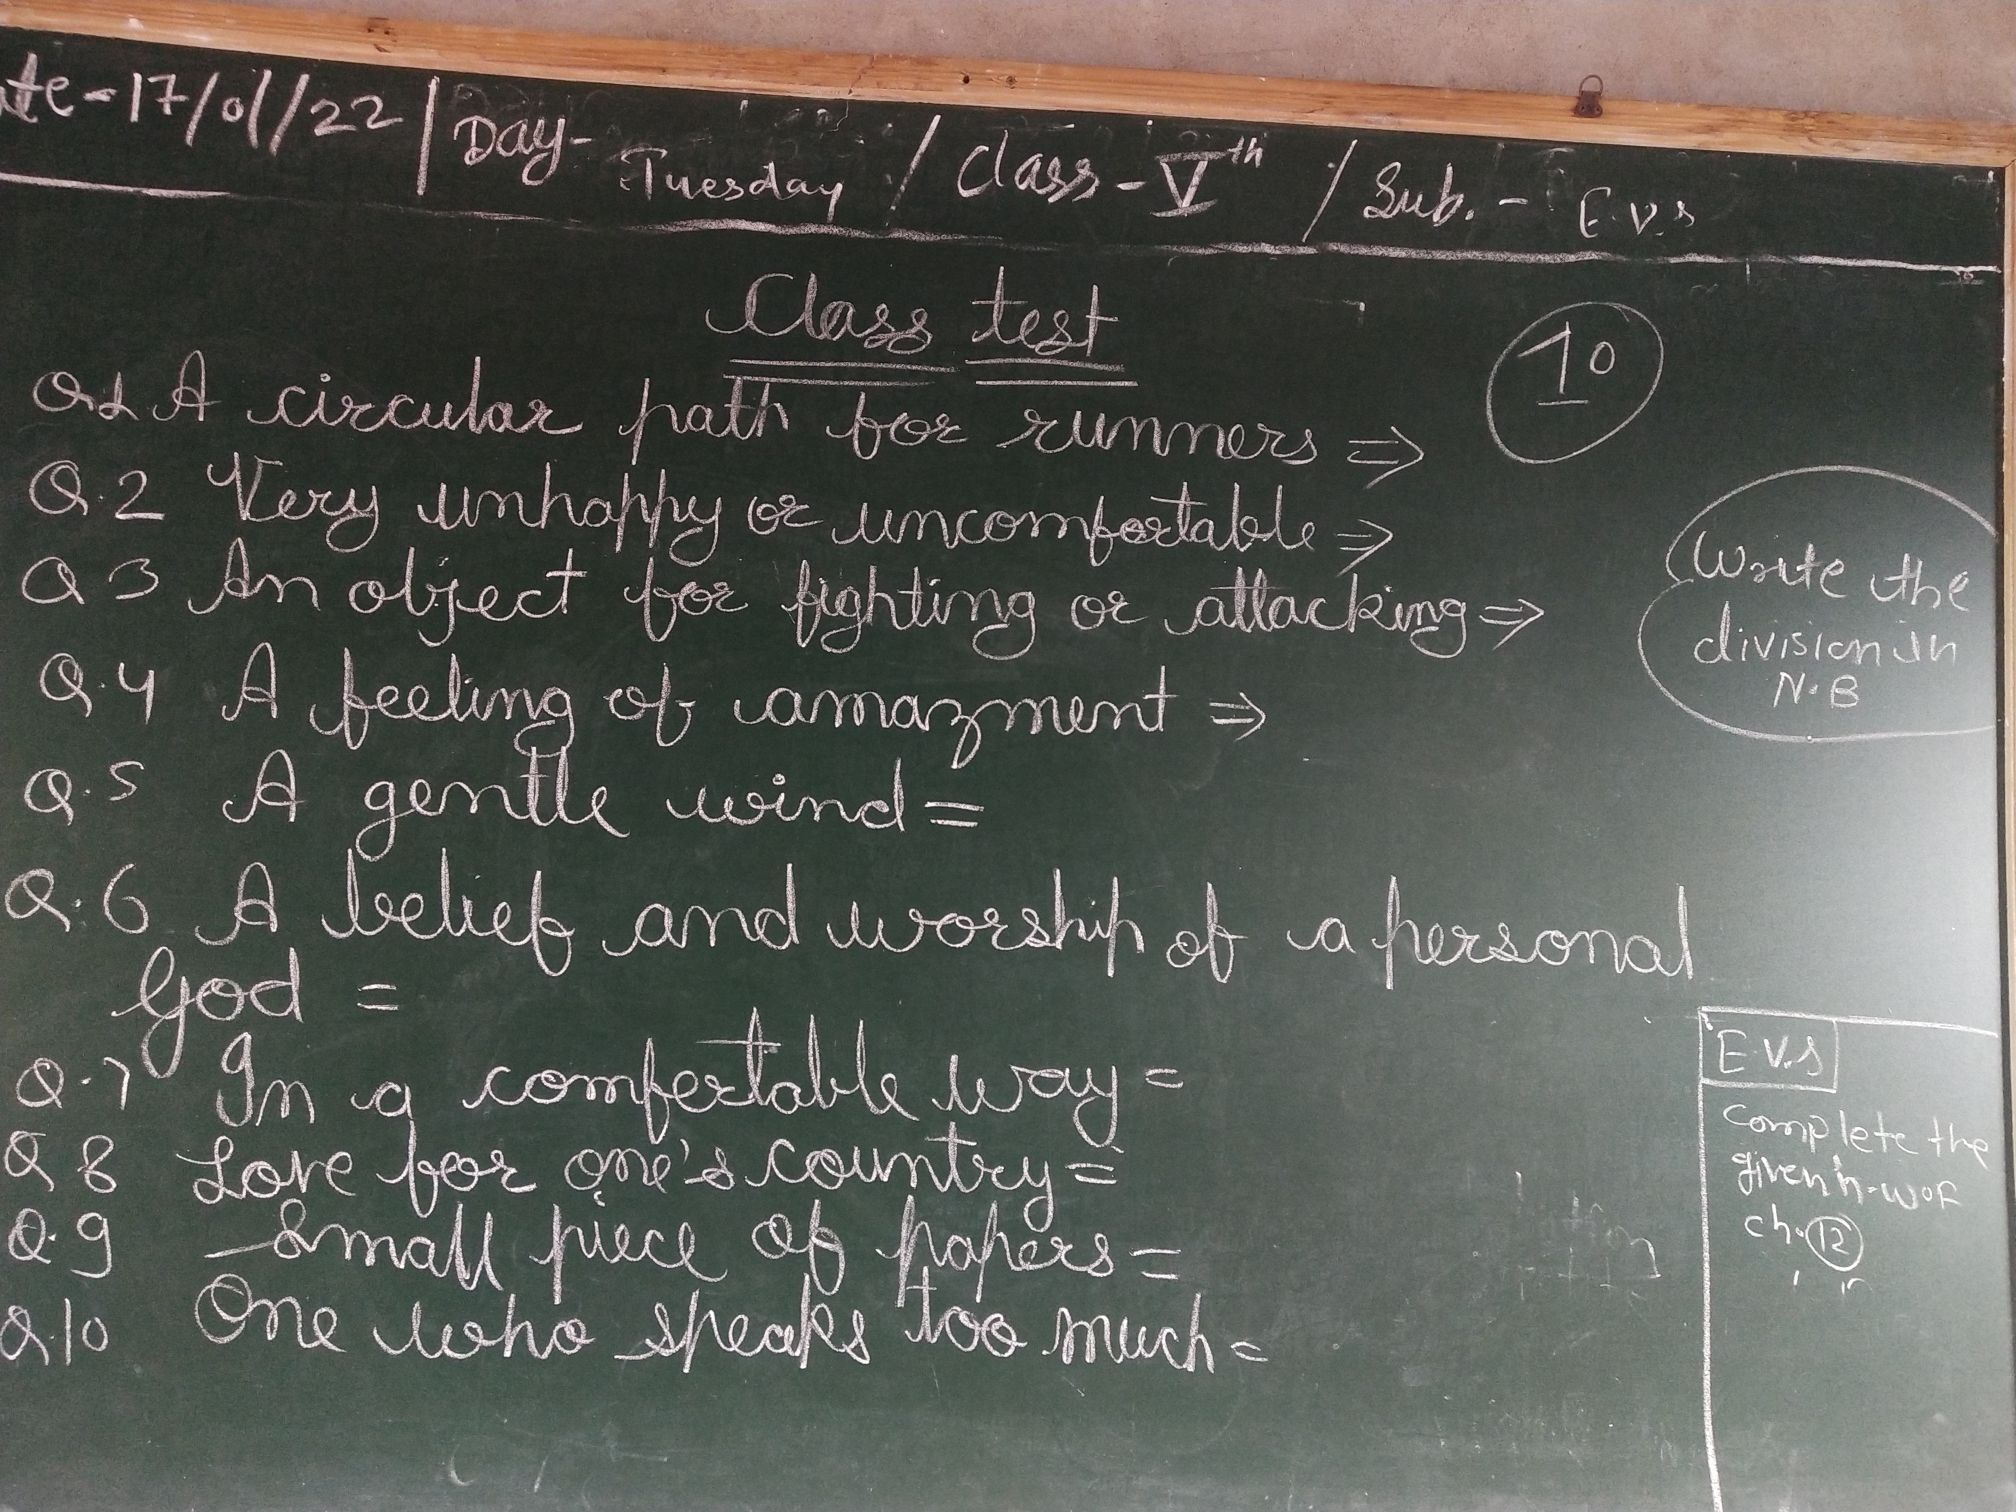 ate - 17/01/22 / Day - Tuesday / Class - Vth / Sub. - E.V.S
Class test
10
Q.1 A circular path for runners ⇒
Q.2 Very unhappy or uncomfortable ⇒
Q 3 An object for fighting or attacking ⇒
Q.4 A feeling of amazment ⇒
Q.5 A gentle wind =
Q.6 A belief and worship of a personal
God =
Q.7 In a comfertable way =
Q 8 Love for one's country =
Q.9 Small piece of papers =
Q.10 One who speaks too much =
Write the
division in
N.B
E.V.S
Complete the
given h-wof
ch. 12